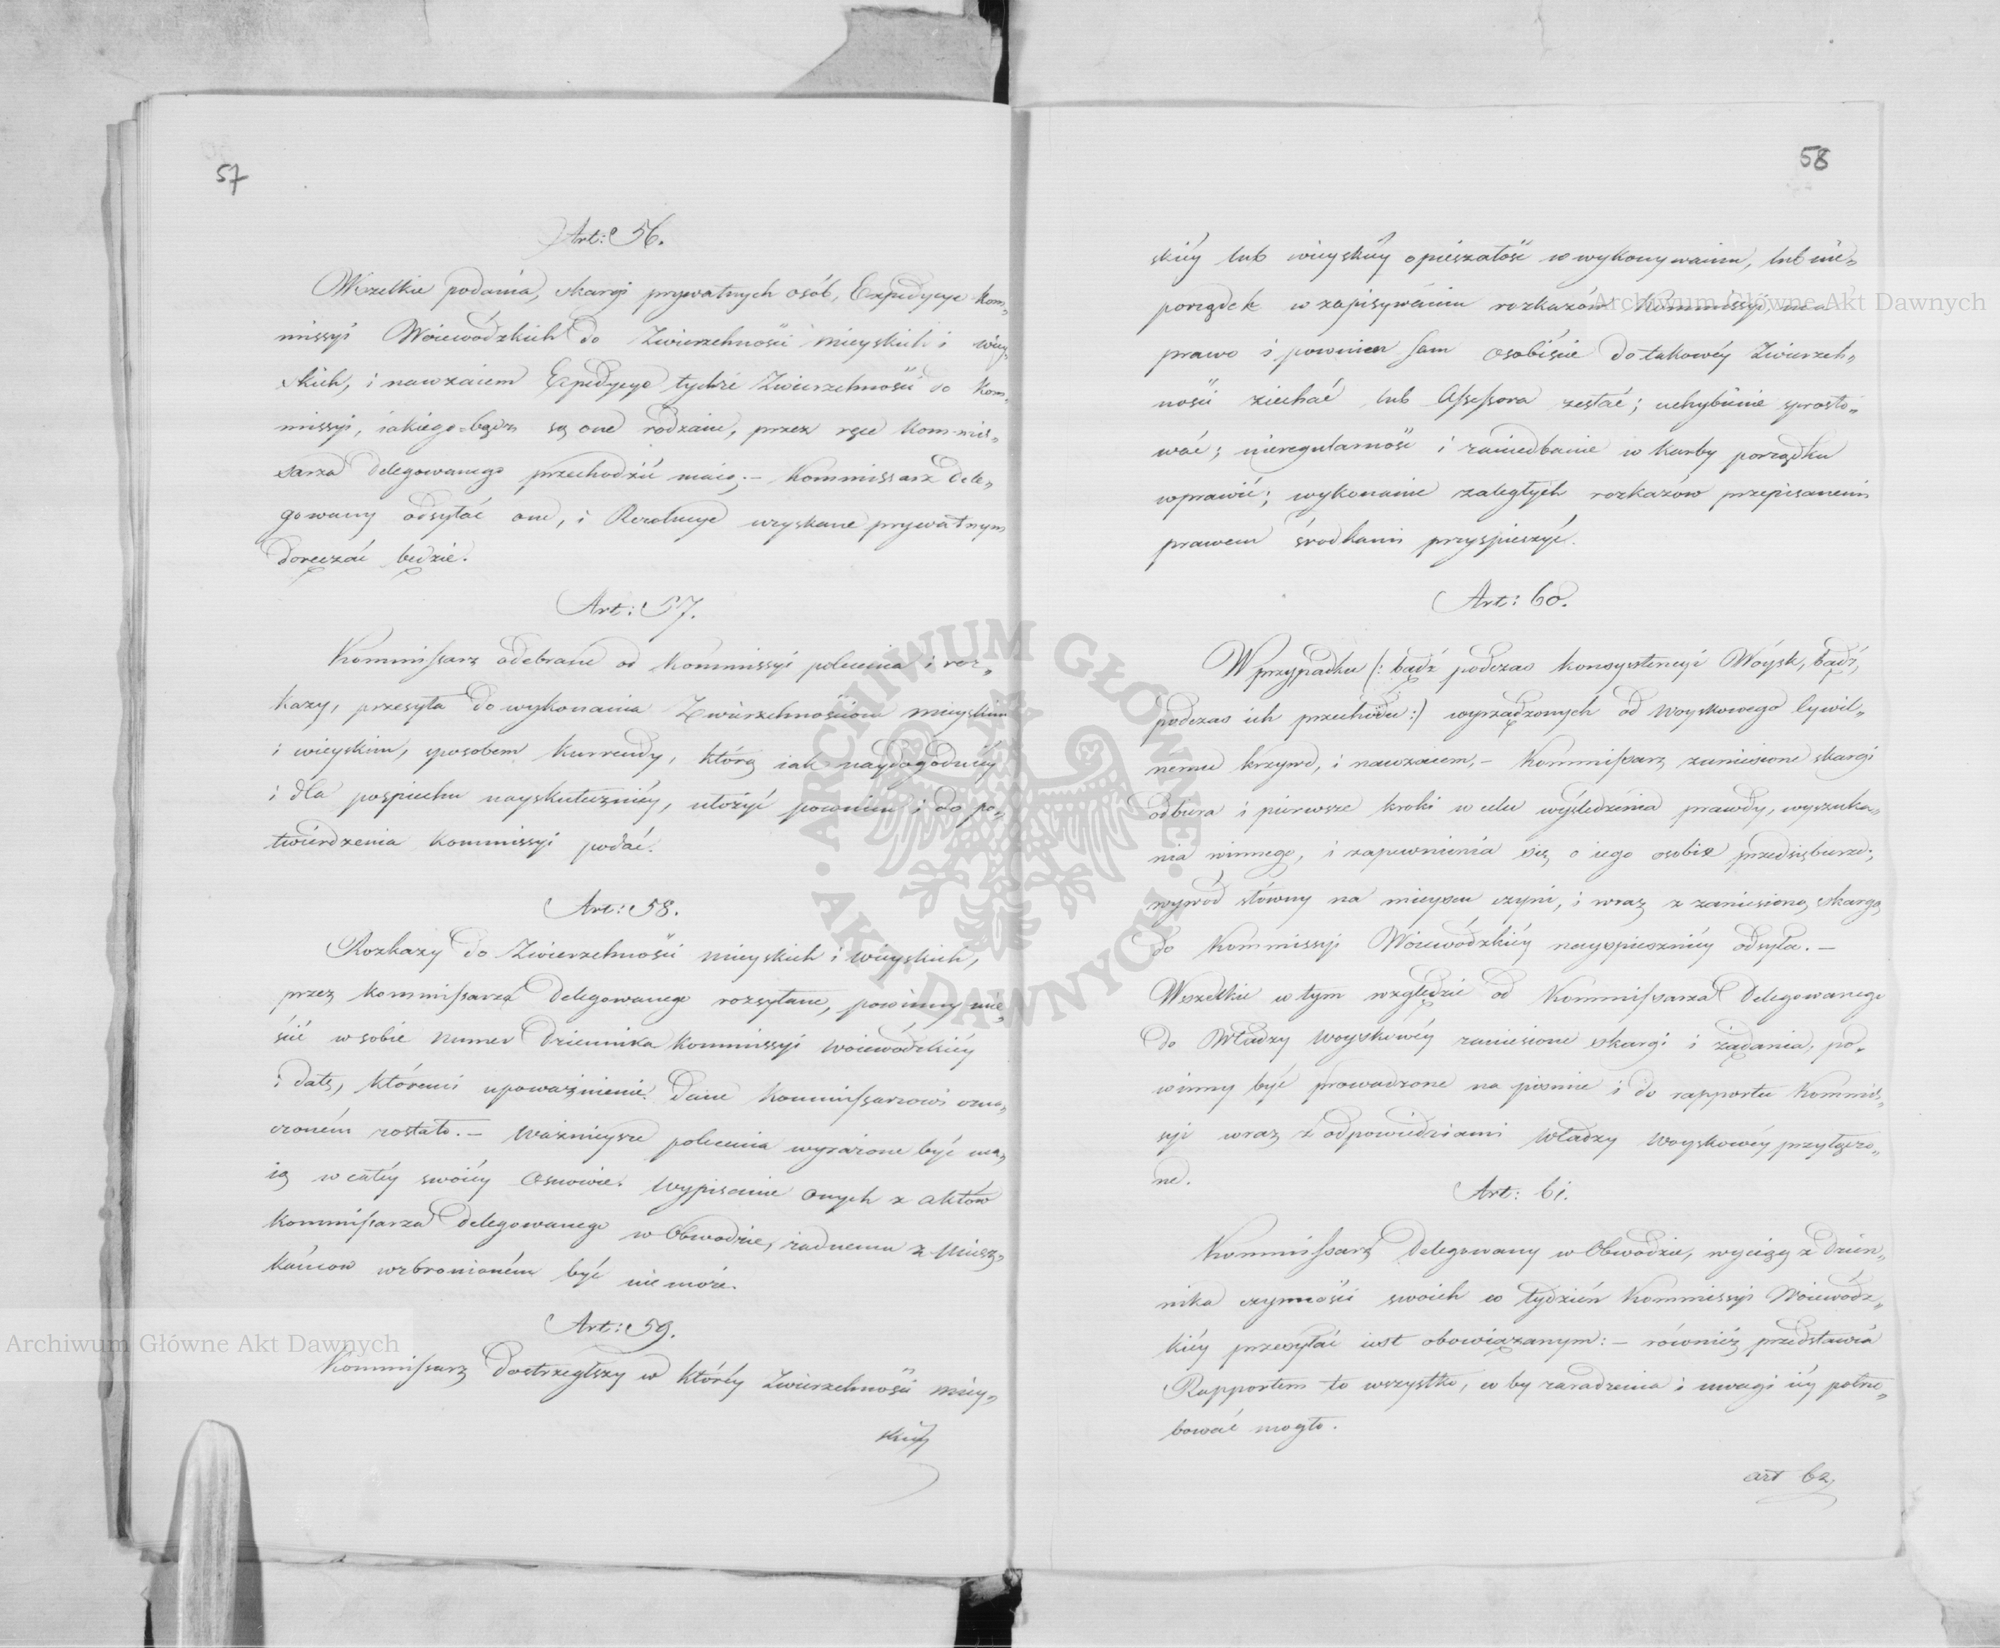 57
Art: 56.
Wszelkie podania, skargi prywatnych osób, Expedycye Kom„
missyi Woiewódzkich do Zwierzchności mieyskich i wiey„
skich, i nawzaiem Expedycye tychże Zwierzchności do Kom„
missyi, iakiego=bądź są one rodzaiu, przez ręce Kommis„
sarza Delegowanego przechodzić maią. – Kommissarz Dele„
gowany odsyłać one, i Rezolucye uzyskane prywatnym
doręczać będzie.
Art: 57.
Kommissarz odebrane od Kommissyi polecenia i roz„
kazy, przesyła do wykonania Zwierzchnościom mieyskim
i wieyskim, sposobem Kurrendy, którą iak naydogodniéy
i dla pospiechu nayskuteczniéy, ułożyć powinien i do po„
twierdzenia Kommissyi podać.
Art: 58.
Rozkazy do Zwierzchności mieyskich i wieyskich,
przez Kommissarza Delegowanego rozsyłane, powinny mie„
ścić w sobie numer Dziennika Kommissyi Woiewódzkiéy
i datę, któremi upoważnienie dane Kommissarzowi ozna„
czoném zostało. – Ważnieysze polecenia wyrażone być ma„
ią w całéy swoiéy osnowie. Wypisanie onych z aktów
Kommissarza Delegowanego w Obwodzie, żadnemu z Miesz„
kańcow wzbronioném być nie może.
Art: 59.
Kommissarz dostrzegłszy w któréy Zwierzchności miey„
skiéy
58
skiéy lub wieyskiéy opieszałość w wykonywaniu, lub nie„
porządek w zapisywaniu rozkazów Kommissyi, ma
prawo i powinien sam osobiście do takowéy Zwierzch„
ności ziechać lub Assessora zesłać; uchybienie sprosto„
wać; nieregularność i zaniedbanie w karby porządku
wprawić; wykonanie zaległych rozkazów przepisanemi
prawem środkami przyspieszyć.
Art: 60.
W przypadku (: bądź podczas konsystencyi Woysk, bądź,
podczas ich przechodu :) wyrządzonych od Woyskowego Cywil„
nemu krzywd, i nawzaiem, – Kommissarz zaniesione skargi
odbiera i pierwsze kroki w celu wyśledzenia prawdy, wyszuka„
nia winnego, i zapewnienia się o iego osobie przedsiębierze;
wywód słowny na mieyscu czyni, i wraz z zaniesioną skargą
do Kommissyi Woiewódzkiéy nayspieszniéy odsyła. –
Wszelkie w tym względzie od Kommissarza Delegowanego
do Władzy Woyskowéy zaniesione skargi i żądania, po„
winny być prowadzone na piśmie i do rapportu Kommis„
syi wraz z odpowiedziami Władzy Woyskowéy przyłączo„
ne.
Art: 61.
Kommissarz Delegowany w Obwodzie, wyciąg z Dzien„
nika czynności swoich co tydzień Kommissyi Woiewódz„
kiéy przesyłać iest obowiązanym: – również przedstawia
Rapportem to wszystko, co by zaradzenia i uwagi iéy potrze„
bować mogło.
art 62.
Archiwum Główne Akt Dawnych
Archiwum Główne Akt Dawnych
ARCHIWUM GŁÓWNE AKT DAWNYCH